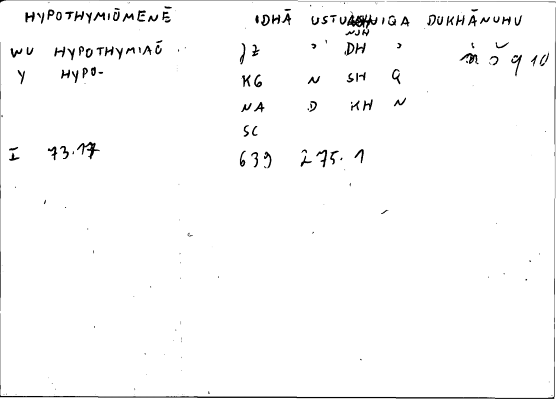 HYPOTHYMIŌMENĒ IDHĀ USTU NIQA DUKHĀNUHU
NJH
WU HYPOTHYMIAŌ JZ ' DH '
Y HYPO- KG N SH Q
NA D KH N
SC
I 73.17 639 275.1